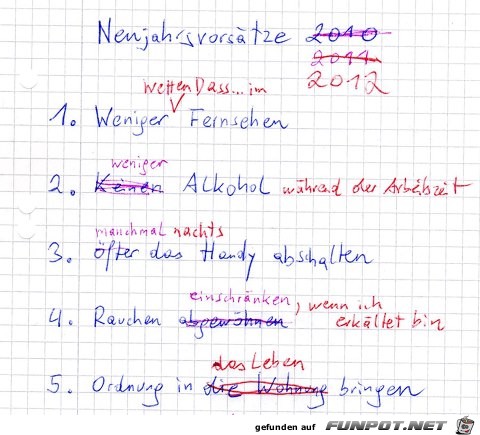 Neujahrsvorsätze 2010
2011
2012
wetten Dass... im
1. Weniger Fernsehen
weniger
2. Keinen Alkohol während der Arbeitszeit
manchmal nachts
3. öfter das Handy abschalten
einschränken, wenn ich
4. Rauchen abgewöhnen erkältet bin
das Leben
5. Ordnung in die Wohnung bringen
gefunden auf FUNPOT.NET